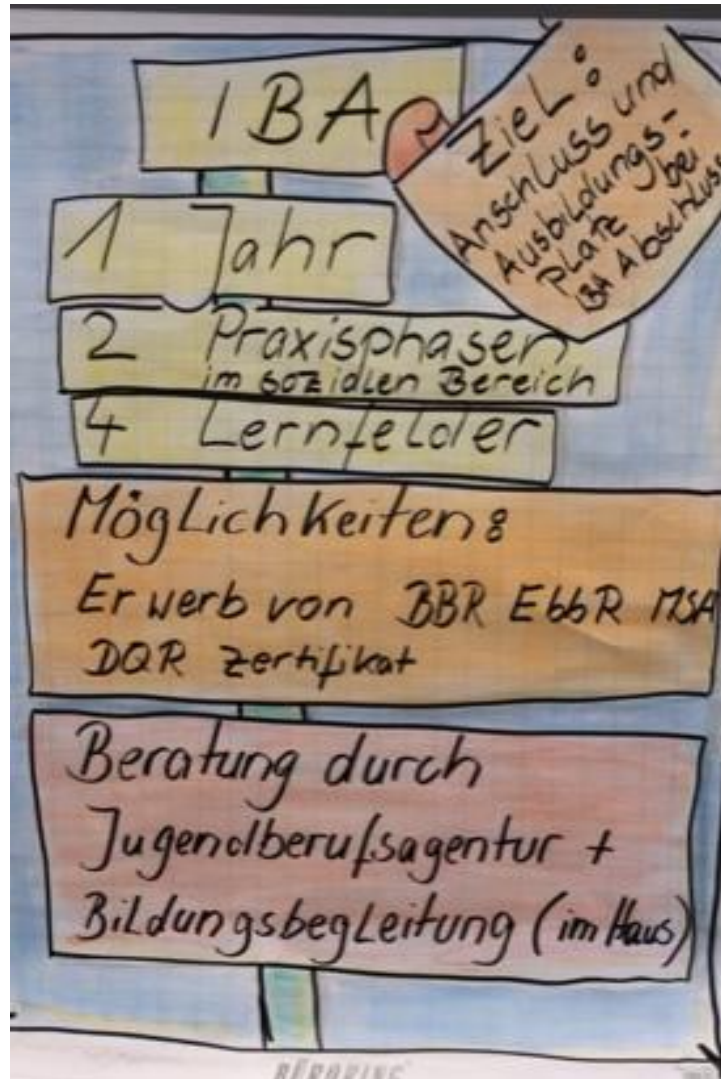 IBA
Ziel:
Anschluss und
Ausbildungs-
platz bei
IBA Abschluss
1 Jahr
2 Praxisphasen
im sozialen Bereich
4 Lernfelder
Möglichkeiten:
Erwerb von BBR EbbR MSA
DQR Zertifikat
Beratung durch
Jugendberufsagentur +
Bildungsbegleitung (im Haus)